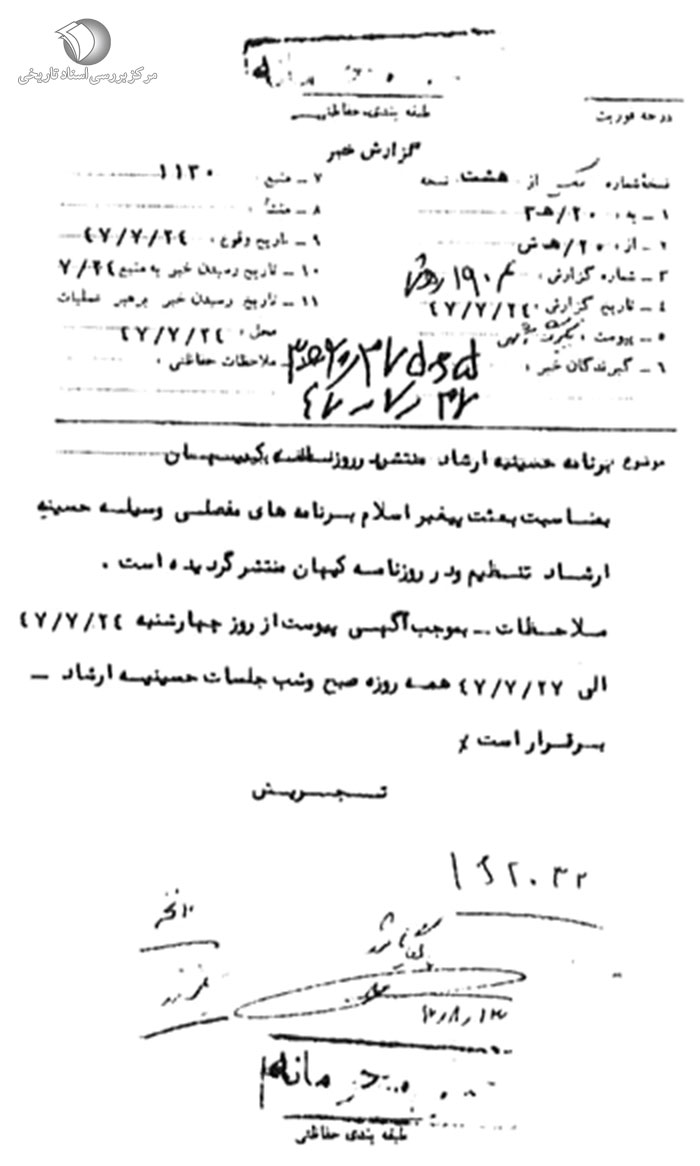 مرکز بررسی اسناد تاریخی
محرمانه
طبقه بندی حفاظتی
درجه فوریت
گزارش خبر
نسخهٔ شماره یک از هشت نسخه
۱ ـ به: ۲۰/هـ۳
۲ ـ از: ۲۰/هـ ش
۳ ـ شماره گزارش:
۴ ـ تاریخ گزارش: ۴۷/۷/۲۴
۵ ـ پیوست:
۶ ـ گیرندگان خبر:
۷ ـ منبع: ۱۱۳۰
۸ ـ منشأ:
۹ ـ تاریخ وقوع: ۴۷/۷/۲۴
۱۰ ـ تاریخ رسیدن خبر به منبع ۷/۲۴
۱۱ ـ تاریخ رسیدن خبر برهبر عملیات
محل: ۴۷/۷/۲۴
ملاحظات حفاظتی:
موضوع: برنامه حسینیه ارشاد منتشره در روزنامه کیهان
بمناسبت بعثت پیغمبر اسلام برنامه های مفصلی وسیله حسینیه
ارشاد تنظیم ودر روزنامه کیهان منتشر گردیده است.
ملاحظات ـ بموجب آگهی پیوست از روز چهارشنبه ۴۷/۷/۲۴
الی ۴۷/۷/۲۷ همه روزه صبح وشب جلسات حسینیه ارشاد ـ
برقرار است
تجریش
محرمانه
طبقه بندی حفاظتی